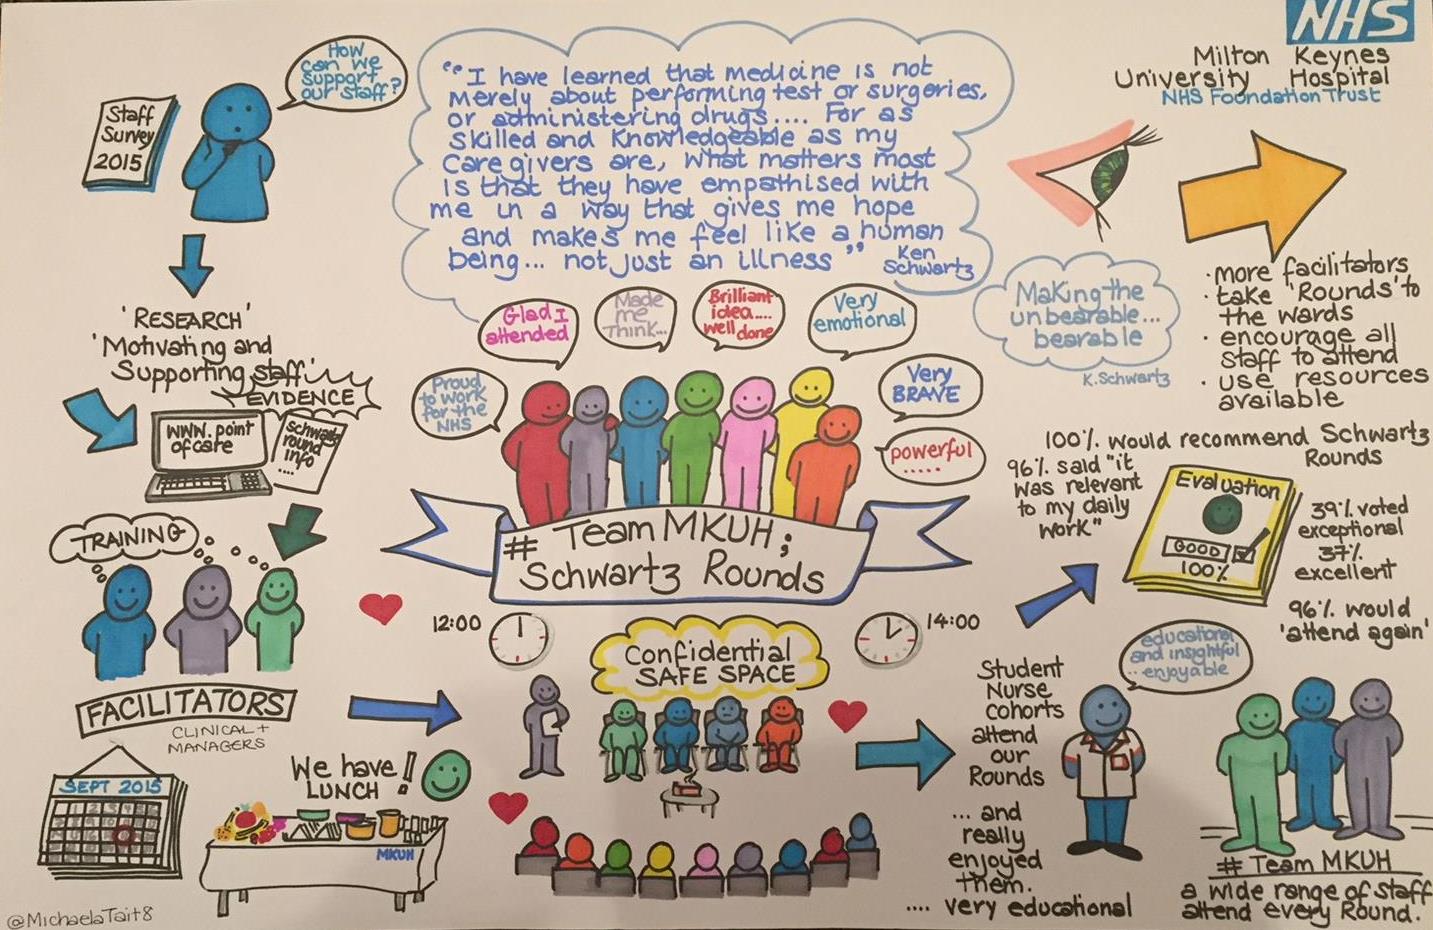 NHS
Milton Keynes
University Hospital
NHS Foundation Trust
How
can we
support
our staff?
Staff
Survey
2015
"I have learned that medicine is not
merely about performing test or surgeries,
or administering drugs.... For as
skilled and knowledgeable as my
care givers are, what matters most
is that they have empathised with
me in a way that gives me hope
and makes me feel like a human
being... not just an illness"
Ken
Schwartz
Making the
unbearable...
bearable
K. Schwartz
· more facilitators
· take 'Rounds' to
the wards
· encourage all
staff to attend
· use resources
available
'RESEARCH'
'Motivating and
Supporting staff'
EVIDENCE
WWW. point
of care
Schwartz
round
info
....
Glad I
attended
Made
me
think...
Brilliant
idea....
well done
Very
emotional
Proud
to work
for the
NHS
Very
BRAVE
powerful
.....
# Team MKUH;
Schwartz Rounds
100% would recommend Schwartz
Rounds
96% said "it
was relevant
to my daily
work"
Evaluation
GOOD
100%
39% voted
exceptional
37%
excellent
96% would
'attend again'
TRAINING
FACILITATORS
CLINICAL +
MANAGERS
12:00
14:00
Confidential
SAFE SPACE
SEPT 2015
We have
LUNCH!
MKUH
Student
Nurse
cohorts
attend
our
Rounds
... and
really
enjoyed
them.
.... very educational
educational
and insightful
...enjoyable
# Team MKUH
a wide range of staff
attend every Round.
@MichaelaTait8